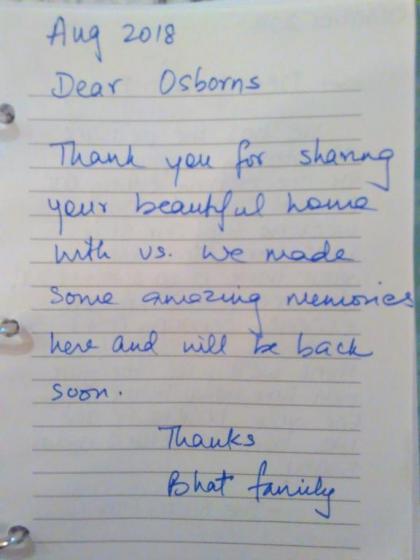 Aug 2018
Dear Osborns
Thank you for sharing
your beautiful home
with us. We made
some amazing memories
here and will be back
soon.
Thanks
Bhat family